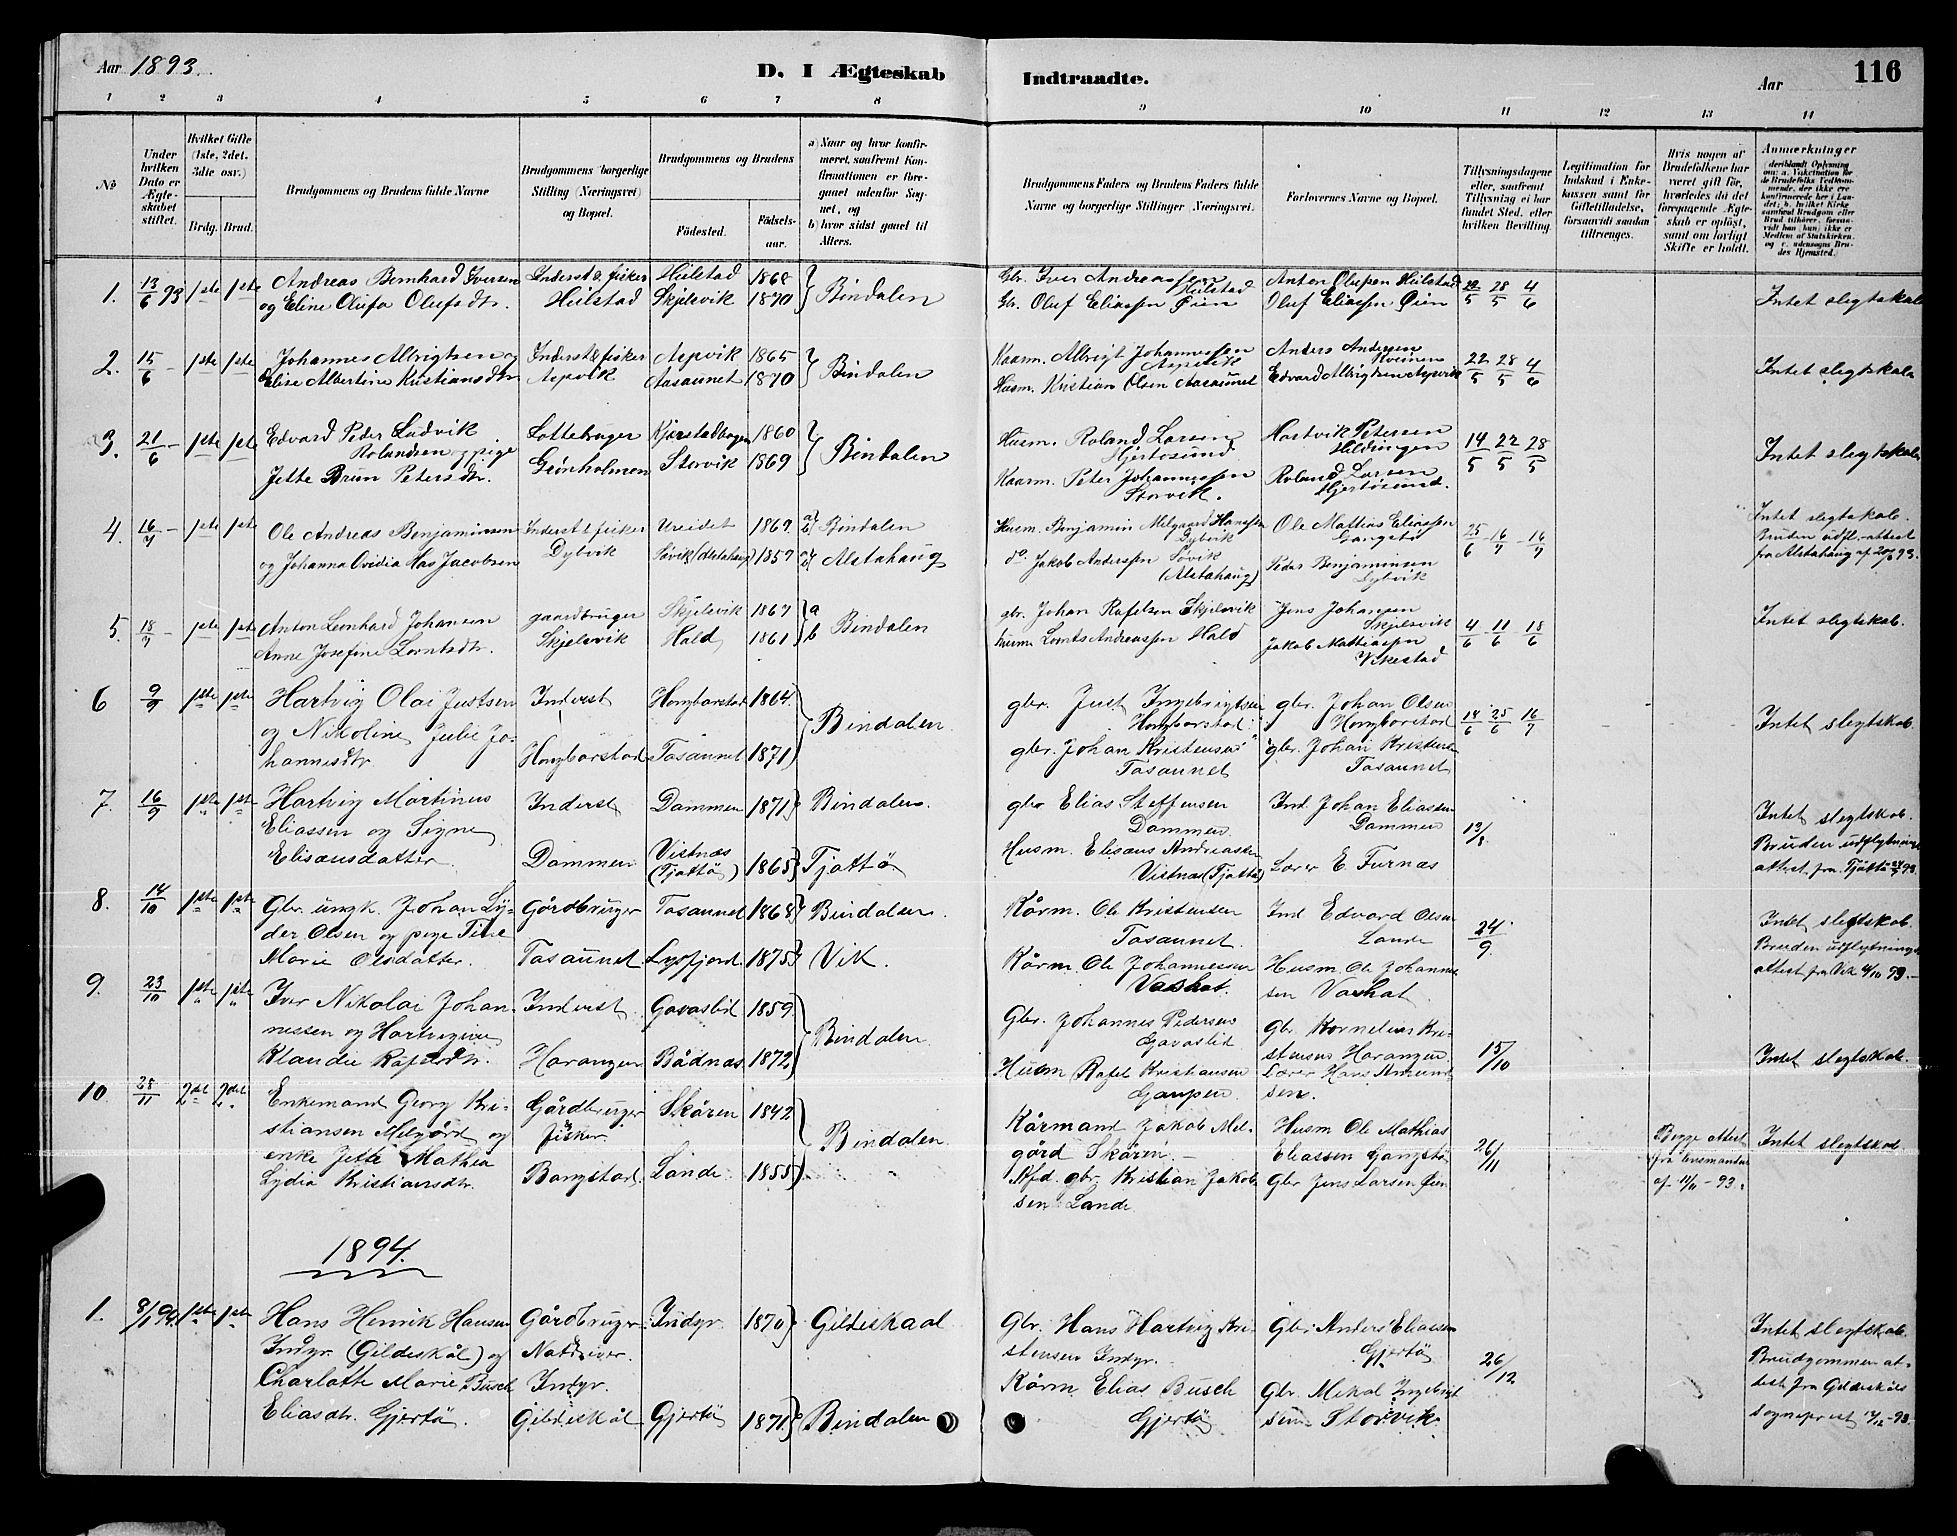 Aar 1893. D. I Ægteskab Indtraadte. Aar 116
1 2 3 4 5 6 7 8 9 10 11 12 13 14
No
Under hvilken Dato er Ægteskabet stiftet.
Hvilket Gifte (1ste, 2det, 3die osv.)
Brdg. Brud.
Brudgommens og Brudens fulde Navne
Brudgommens borgerlige Stilling (Næringsvei) og Bopæl.
Brudgommens og Brudens
Fødested. Fødselsaar.
a) Naar og hvor konfirmeret, saafremt Konfirmationen er foregaaet udenfor Sognet, og
b) hvor sidst gaaet til Alters.
Brudgommens Faders og Brudens Faders fulde Navne og borgerlige Stillinger (Næringsvei.
Forlovernes Navne og Bopæl.
Tillysningsdagene eller, saafremt Tillysning ei har fundet Sted, efter hvilken Bevilling.
Legitimation for Indskud i Enkekassen samt for Giftetilladelse, forsaavidt saadan tiltrænges.
Hvis nogen af Brudefolkene har været gift før, hvorledes da det foregaaende Ægteskab er opløst, samt om lovligt Skifte er holdt.
Anmærkninger
1. 13/6 93 1ste 1ste Andreas Bernhard Iversen Inderst & fisker Heilstad 1868 Gbr. Iver Andreassen Heilstad Anton Olufsen Heilstad
og Eline Olufa Olufsdtr. Heilstad Skjelsvik 1870 Bindalen Gb. Oluf Eliassen Øien Oluf Eliassen Øien 22/5 28/5 4/6 Intet slegtskab
2. 15/6 – 1ste 1ste Johannes Albrigtsen og Inderst & fisker Aspvik 1865 Kaarm. Albrigt Johannessen Aspvik Anders Andersen
Elise Albertine Kristiansdtr. Aspvik Aasaunet 1870 Bindalen Husm. Kristian Olsen Aasaunet Edvard Albrigtsen Aspvik 22/5 28/5 4/6 Intet slegtskab
3. 21/6 – 1ste 1ste Edvard Peder Ludvik Lottebruger 1860 Husm. Roland Larsen Hartvik Petersen
Rolandsen og pige Grønholmen Storvik 1869 Bindalen Gjertøsund Heldringen 14/5 22/5 28/5 Intet slegtskab
Jette Brun Petersdtr. Kaarm. Peter Johannessen Storvik. Roland Larsen Gjertøsund.
4. 16/7 – 1ste 1ste Ole Andreas Benjaminsen Inderst & fisker Vreidet 1869 Bindalen Husm. Benjamin Melgaard Hanssen Dybvik Ole Mattias Eliassen Gangstø Intet slegtskab.
og Johanna Ovidia Has Jacobsen Dybvik Søvik (Alstahaug) 1857 Alstahaug do. Jakob Anderssen Søvik (Alstahaug) Peder Benjaminsen Dybvik 25/6 – 16/7 – 16/7 Bruden udfl.-attest fra Alstahaug af 20/6 93.
5. 18/7 – 1ste 1ste Anton Leonhard Johansen gaardbruger Skjelsvik 1867 a gbr. Johan Rafelsen Skjelsvik Jens Johansen Skjelsvik
Anne Josefine Lorntsdtr. Skjelsvik Hald 1861 b Bindalen husm. Lornts Andreassen Hald Jakob Mattiassen Vikestad 4/6 11/6 18/6 Intet slegtskab.
6 9/9 1ste 1ste Hartvig Olai Justsen Inderst Hongborstad 1864 gbr. Just Ingebrigtsen Hongborstad gbr. Johan Olsen Hongborstad
og Nikoline Julie Johannisdtr. Hongborstad Tosaunet 1871 Bindalen gbr. Johan Kristensen Tosaunet gbr. Johan Kristensen Tosaunet 25/6 16/7 Intet slegtskab.
7. 16/9 1ste 1ste Hartvig Martinus Inderst Dammen 1871 Bindalen. gbr Elias Steffensen Dammen. Ind. Johan Eliassen Dammen 13/8 Intet slegtskab.
Eliassen og Signe Elisæusdatter. Dammen Vistnæs (Tjøttø) 1865 Tjøttø Husm. Elisæus Andreassen Vistnæs (Tjøttø) Lærer E. Furnæs Bruden udflytningsattest fra Tjøttø 93
8. 14/10 1ste 1ste Gbr. ungk. Johan Lyder Olsen og pige Tine Gårdbruger Tosaunet 1868 Bindalen. Kårm. Ole Kristensen Tosaunet. Ind Edvard Olsen Lande 24/9 Intet slegtskab.
Marie Olsdatter. Tosaunet Lysfjord 1875 Vik. Kårm. Ole Johannessen Vashat. Husm. Ole Johannessen Vashat. Bruden udflytningsattest fra Vik 93.
9. 23/10 1ste 1ste Iver Nikolai Johannessen og Hartvigine Inderst Gavaslid 1859 Gbr. Johannes Pedersen Gavaslid Gbr Kornelius Kristensen Horangen
Klaudie Rafelsdtr. Horangen Bådnæs 1872 Bindalen. Husm Rafel Kristiansen Gaupen Lærer Hans Amundsen. 15/10 Intet slegtskab.
10 25/11 2det 2det Enkemand Georg Kristiansen Melgård og Gårdbruger fisker Skåren 1842 Kårmand Jakob Melgård Skåren. – Husm Ole Mathias Eliassen Gangstø 26/11 Begge attest fra lensmanden af 11/11 – 93. Intet slegtskab.
enke Jette Mathea Lydia Kristiansdtr. Bangstad Lande 1855 Bindalen. Afd. gbr. Kristian Jakobsen Lande Gbr Jens Larsen Øien
1894.
1. 8/1 94. 1ste 1ste Hans Henrik Hansen Gårdbruger Indyr. 1870 Gildeskaal Gbr. Hans Hartvig Kristensen Indyr. Gbr. Anders Eliassen Gjertø Intet slegtskab.
Indyr (Gildeskål) og Indyr. 26/12 Brudgommen attest fra Gildeskåls
Charlotte Marie Busch Kårm Elias Busch Gbr. Mikal Ingebrigtsen Storvik.
Eliasdtr. Gjertø. Gildeskål Gjertø 1871 Bindalen Gjertø sogneprest 12/12 – 93.